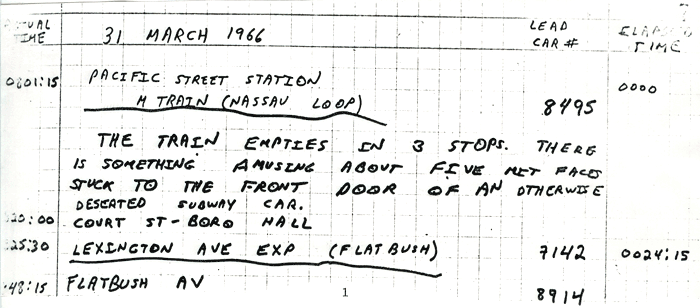 TIME 31 MARCH 1966 LEAD CAR # ELAPSED TIME
0801:15 PACIFIC STREET STATION 0000
M TRAIN (NASSAU LOOP) 8495
THE TRAIN EMPTIES IN 3 STOPS. THERE
IS SOMETHING AMUSING ABOUT FIVE MET FACES
STUCK TO THE FRONT DOOR OF AN OTHERWISE
DESEATED SUBWAY CAR.
20:00 COURT ST-BORO HALL
25:30 LEXINGTON AVE EXP (FLATBUSH) 7142 0024:15
48:15 FLATBUSH AV
1 8914